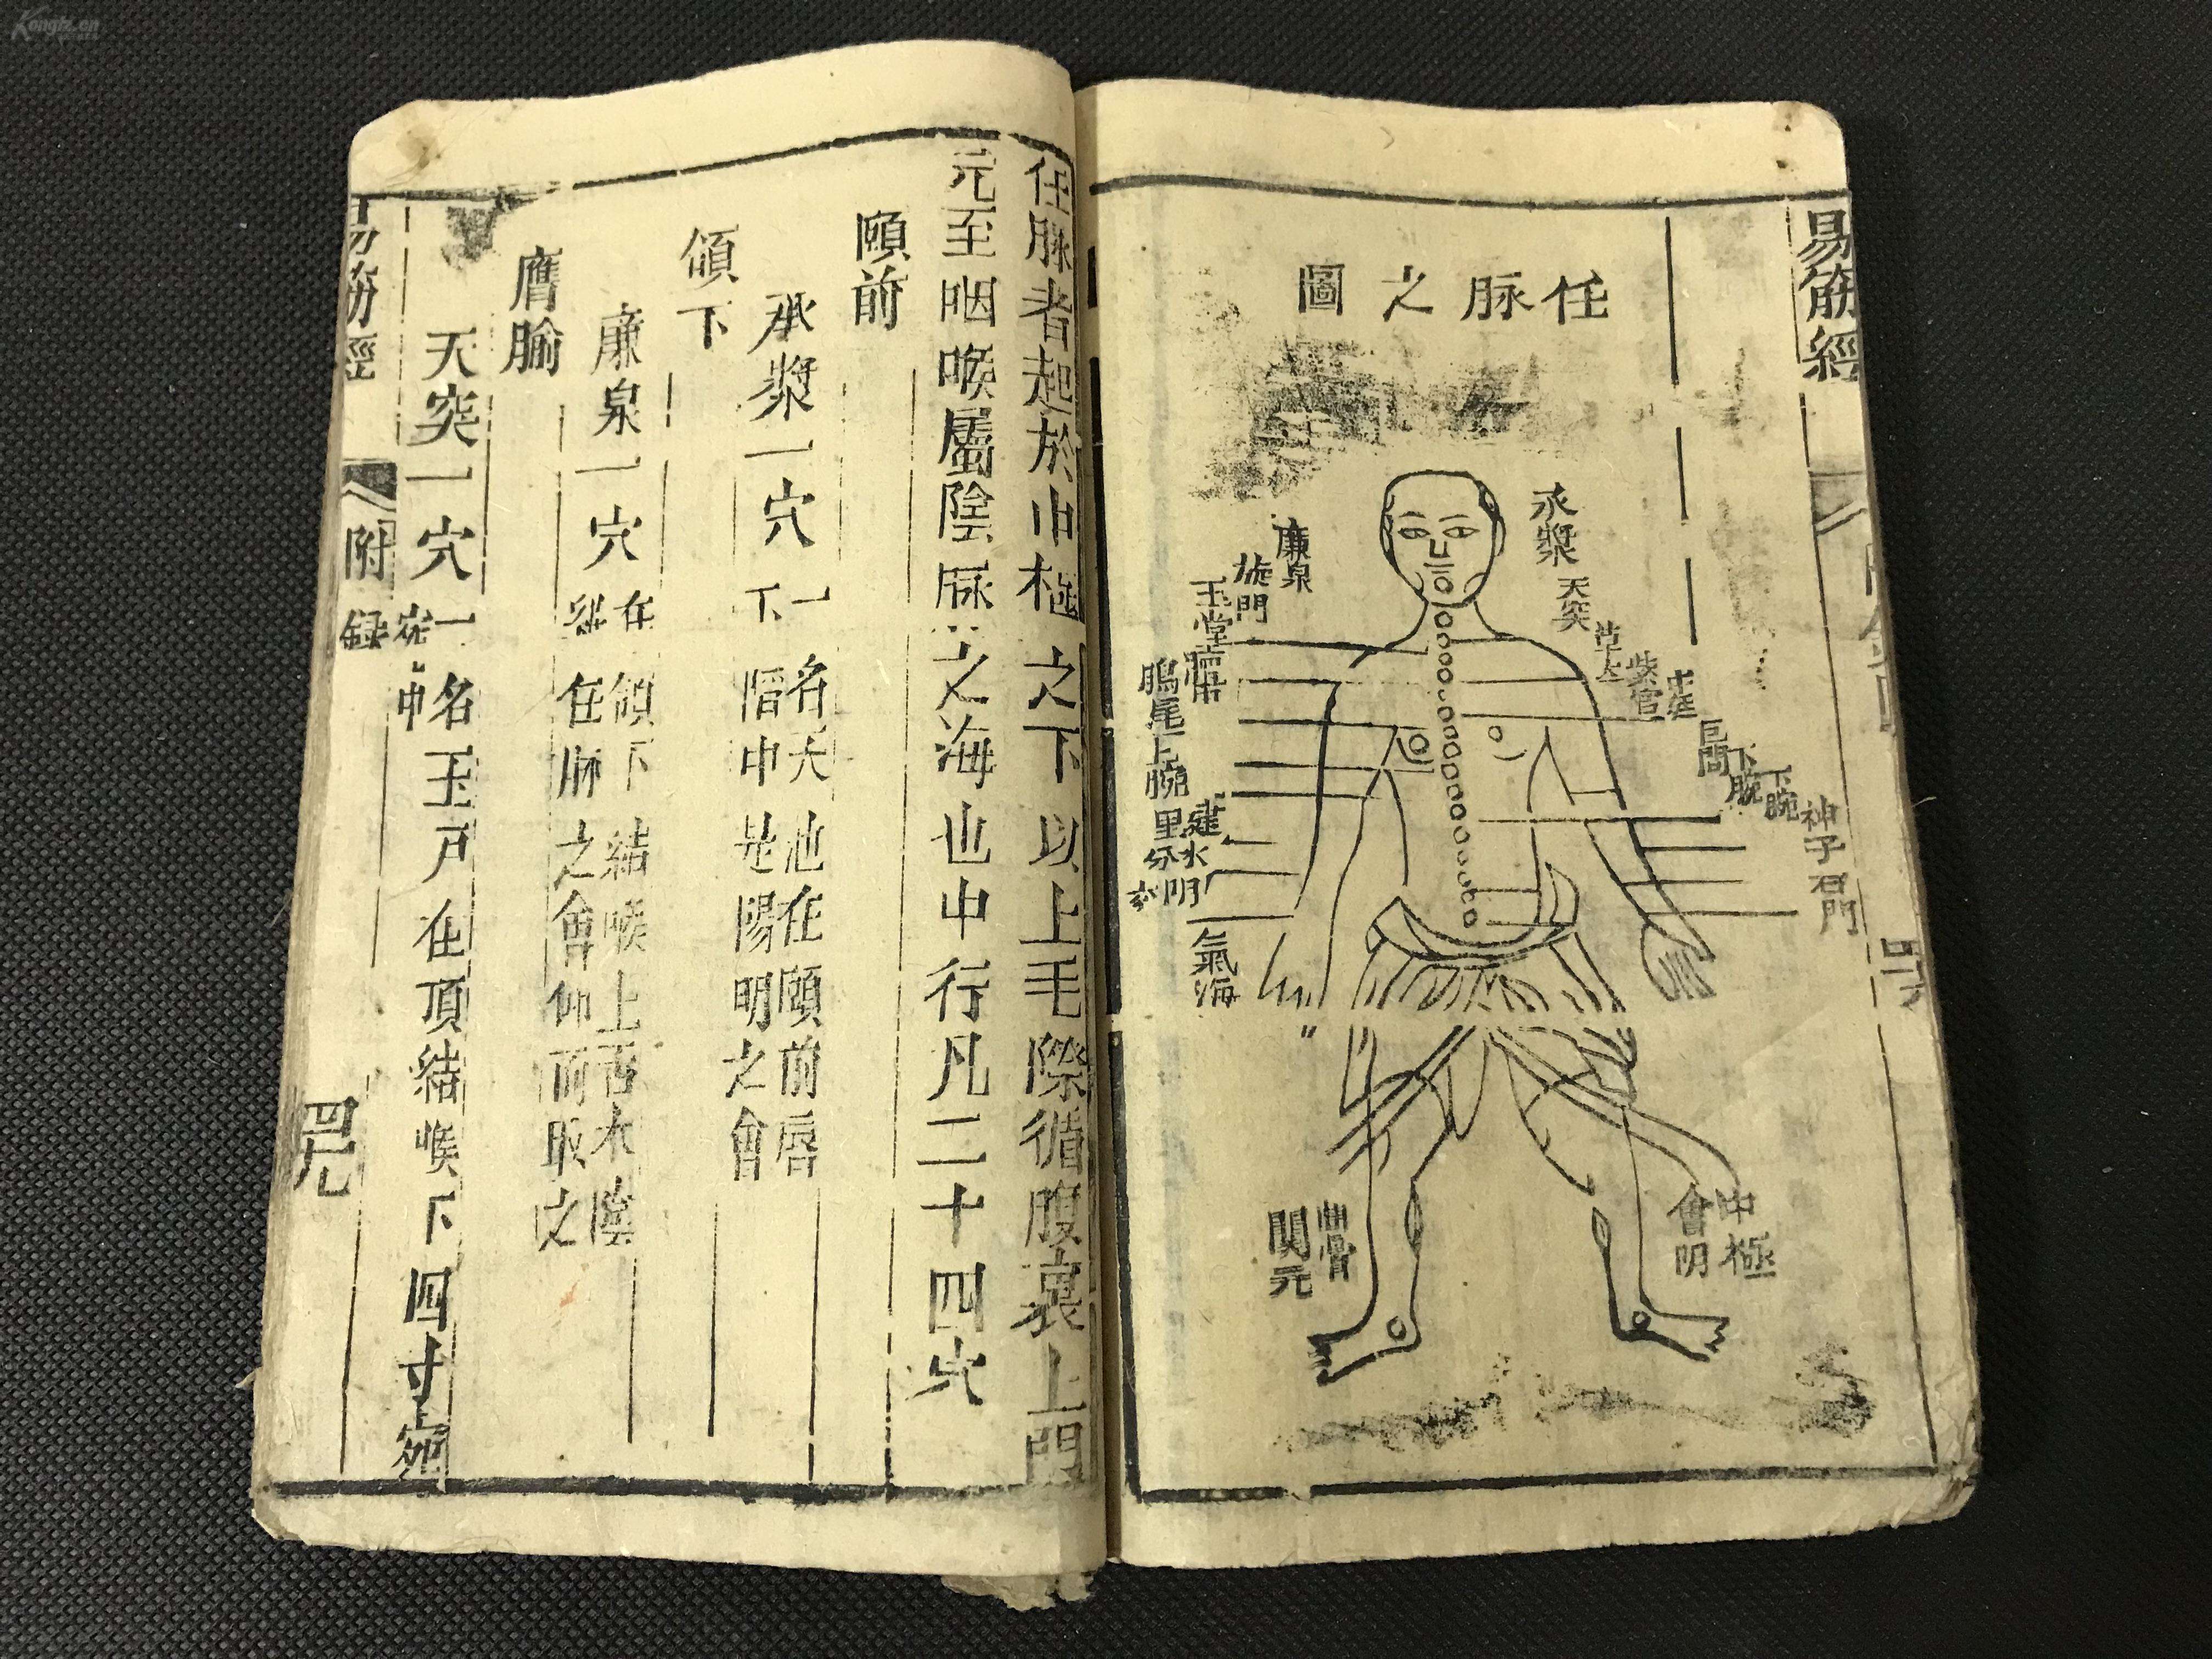 Kongfz.cn
易筋經
任脉之圖
承漿
天突
廉泉
玉堂
紫宮
鳩尾
上腕
巨
下腕
下腕
建里
水分
神
門
氣海
中極
會
曲骨
關元
任脉者起於中極之下以上毛際循腹裏上關
元至咽喉屬陰脉之海也中行凡二十四穴
頤前
承漿一穴一名天池在頤前唇
下陷中是陽明之會
頷下
廉泉一穴在頷下結喉上舌本陰
維任脉之會仰而取之
膺腧
天突一穴一名玉戸在頂結喉下四寸宛
宛中
易筋經
附録
四九